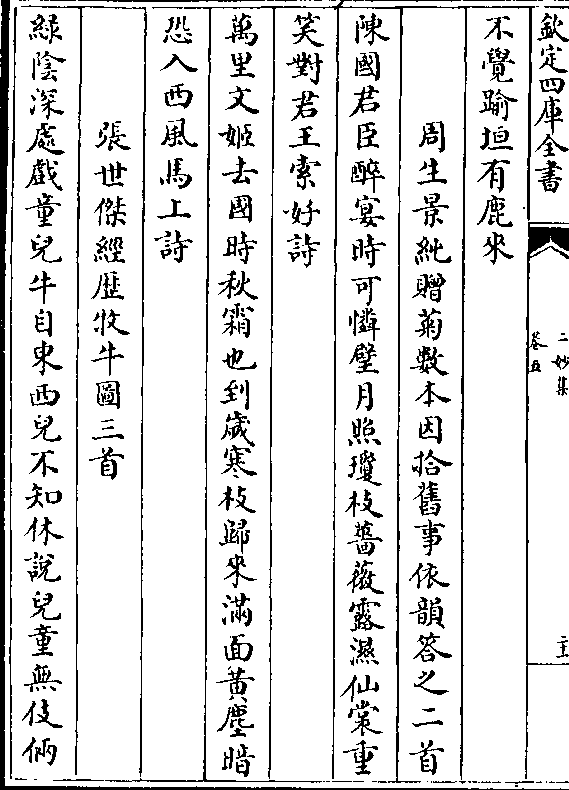 欽定四庫全書
二妙集
卷五
不覺踰垣有鹿來
周生景純贈菊數本因拾舊事依韻答之二首
陳國君臣醉宴時可憐璧月照瓊枝薔薇露濕仙裳重
笑對君王索好詩
萬里文姬去國時秋霜也到歲寒枝歸來滿面黃塵暗
恐入西風馬上詩
張世傑經歷牧牛圖三首
綠陰深處戲童兒牛自東西兒不知休說兒童無伎倆